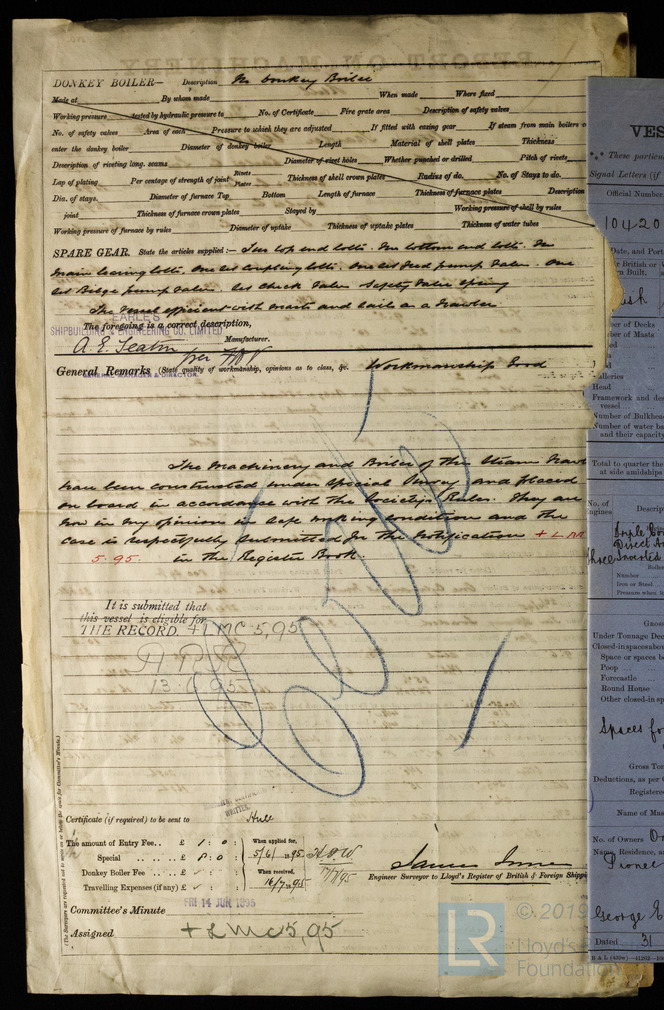 DONKEY BOILER— Description No Donkey Boiler
Made at By whom made When made Where fixed
Working pressure tested by hydraulic pressure to No. of Certificate Fire grate area Description of safety valves
No. of safety valves Area of each Pressure to which they are adjusted If fitted with easing gear If steam from main boilers
enter the donkey boiler Diameter of donkey boiler Length Material of shell plates Thickness
Description of riveting long. seams Diameter of rivet holes Whether punched or drilled Pitch of rivets
Lap of plating Per centage of strength of joint Rivets Plates Thickness of shell crown plates Radius of do. No. of Stays to do.
Dia. of stays. Diameter of furnace Top Bottom Length of furnace Thickness of furnace plates Description
joint Thickness of furnace crown plates Stayed by Working pressure of shell by rules
Working pressure of furnace by rules Diameter of uptake Thickness of uptake plates Thickness of water tubes
SPARE GEAR. State the articles supplied:— Two top end bolts. Two bottom end bolts. Two
main bearing bolts. One set coupling bolts. One set Feed pump Valves. One
set Bilge pump Valves. set Check Valves Safety Valve Spring
The Vessel efficient with masts and sails as a trawler.
EARLE'S
The foregoing is a correct description,
SHIPBUILDING & ENGINEERING CO. LIMITED
A. E. Seaton per Manufacturer.
GENERAL MANAGER & DIRECTOR.
General Remarks (State quality of workmanship, opinions as to class, &c. Workmanship Good
The Machinery and Boiler of this Steam Trawl
have been constructed under Special Survey and placed
on board in accordance with the Society's Rules. They are
now in my opinion in safe working condition and the
case is respectfully submitted for the notification + LMC
5.95. in the Register Book.
It is submitted that
this vessel is eligible for
THE RECORD. + LMC 5,95
13 6 95
Certificate (if required) to be sent to Hull
The amount of Entry Fee.. £ 1 : 0 : When applied for,
Special .. .. £ 8 : 0 : 5/6/1895
Donkey Boiler Fee .. £ When received,
Travelling Expenses (if any) £ 16/7/1895
James
Engineer Surveyor to Lloyd's Register of British & Foreign Shipping
Committee's Minute FRI 14 JUN 1895
Assigned + LMC 5,95
(The Surveyors are requested not to write on or below the space for Committee's Minute.)
VES
These particu
Signal Letters (if
Official Number
10420
Date, and Port
No. of Decks
No. of Masts
Galleries
Head
Framework and des
vessel
Number of Bulkhea
Number of water ba
and their capacity
Total to quarter the
at side amidships
No. of
Engines
Descrip
Triple
Direct
Inverted
Three
Boiler
Number
Iron or Steel
Pressure when l
Gross
Under Tonnage Dec
Closed-in spaces abov
Space or spaces b
Poop
Forecastle
Round House
Other closed-in sp
Spaces fo
Gross Ton
Deductions, as per C
Registere
Name of Mas
No. of Owners
Name, Residence, a
Pioneer
George E
Dated 31
LR
© 2019
Lloyd's
Foundation